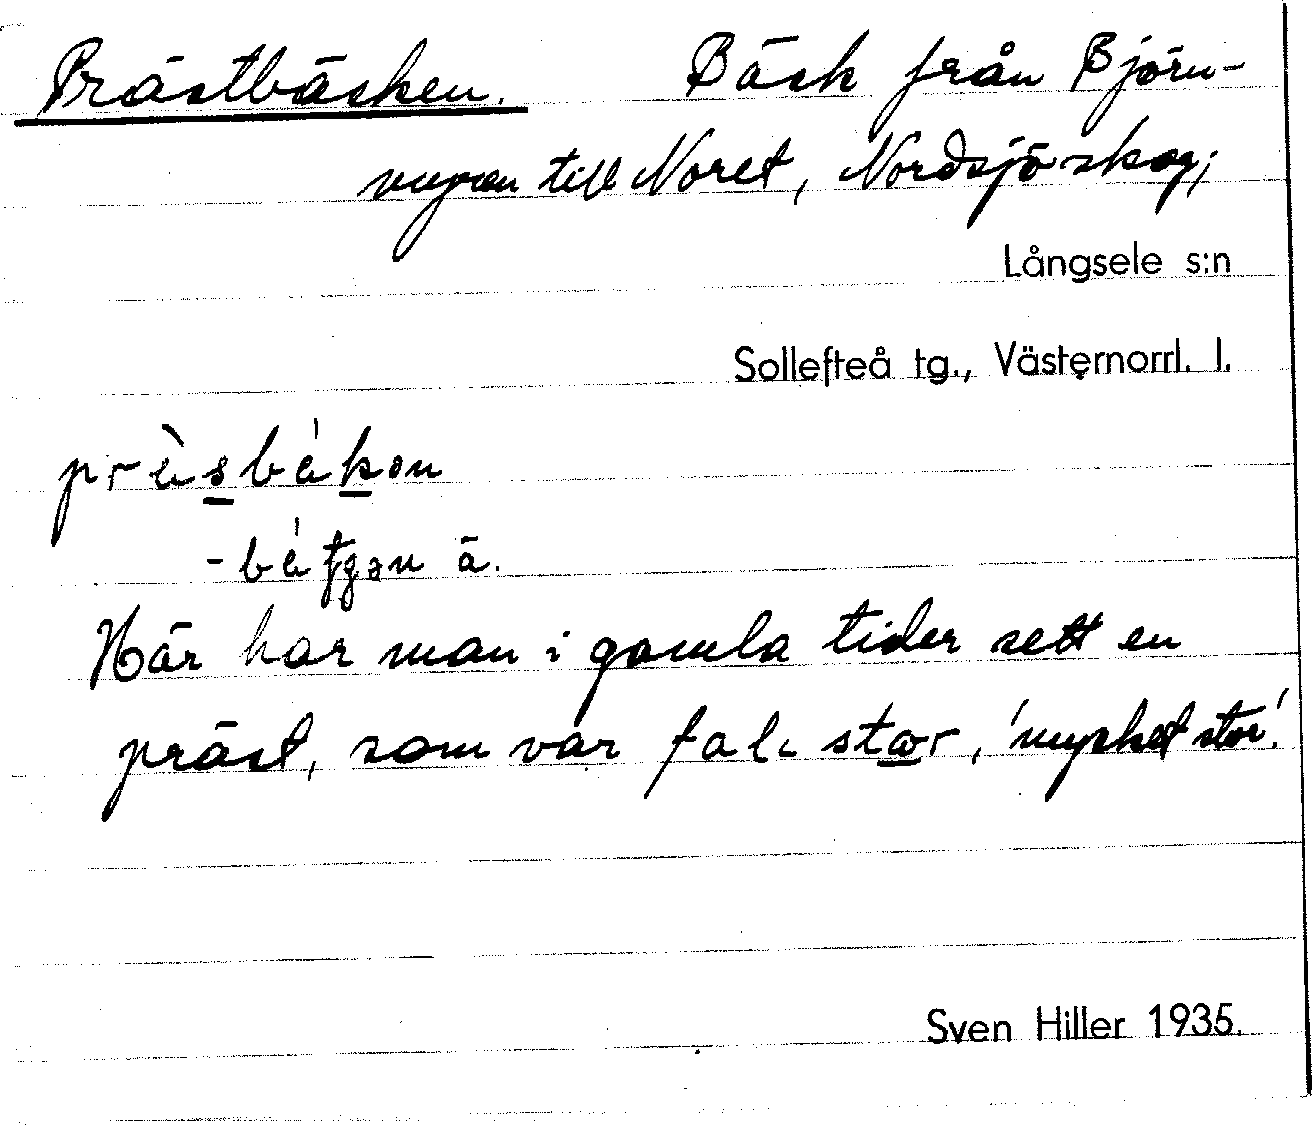 Prästbäcken. Bäck från Björn-
myran till Noret, Nordsjö skog;
Långsele s:n
Sollefteå tg., Västernorrl. l.
prèsbékən
-bétgən ä.
Här har man i gamla tider sett en
präst, som var fali stor, 'mycket stor'.
Sven Hiller 1935.